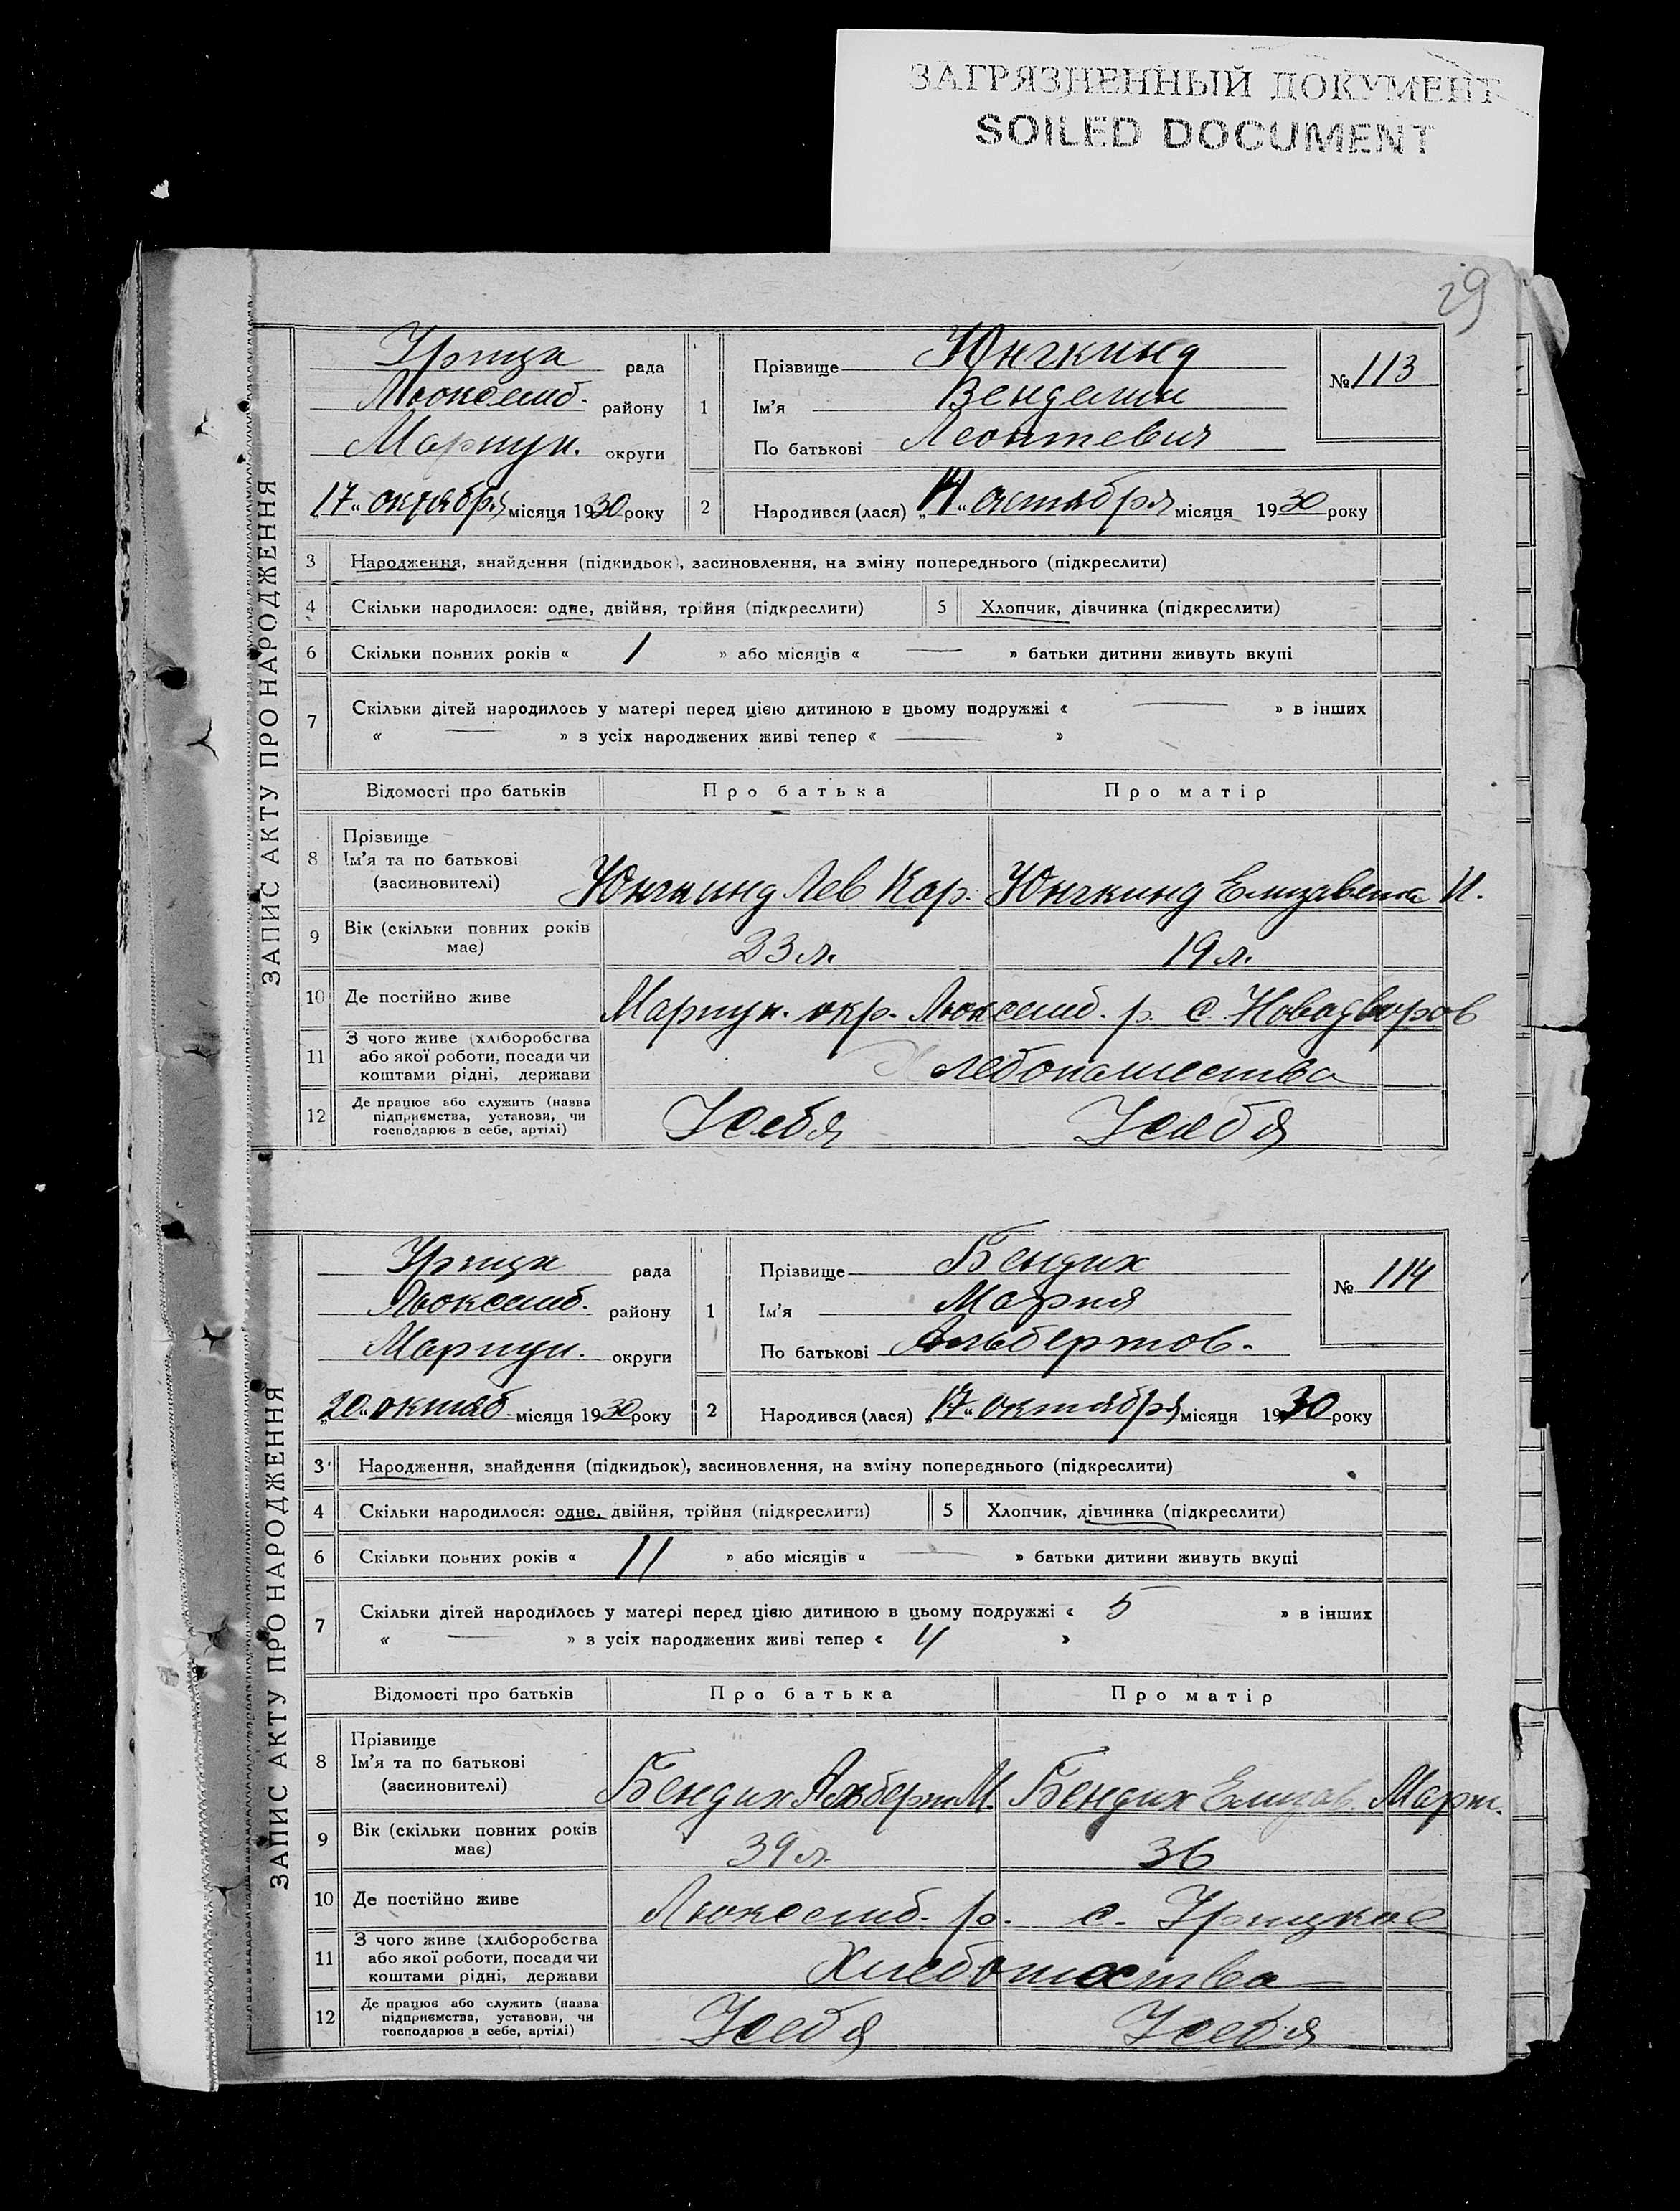 ЗАГРЯЗНЕННЫЙ ДОКУМЕНТ
SOILED DOCUMENT
29
ЗАПИС АКТУ ПРО НАРОДЖЕННЯ
Урицк рада
Люксемб. району
Мариуп. округи
„17“ октября місяця 1930 року
1 Прізвище Юнгкинд
Ім'я Венделин
По батькові Леонтевич
№ 113
2 Народився (лася) „14“ октября місяця 1930 року
3 Народження, знайдення (підкидьок), засиновлення, на зміну попереднього (підкреслити)
4 Скільки народилося: одне, двійня, трійня (підкреслити) 5 Хлопчик, дівчинка (підкреслити)
6 Скільки повних років « 1 » або місяців « — » батьки дитини живуть вкупі
7 Скільки дітей народилось у матері перед цією дитиною в цьому подружжі « — » в інших
« — » з усіх народжених живі тепер « — »
Відомості про батьків Про батька Про матір
8 Прізвище
Ім'я та по батькові
(засиновителі)
Юнгкинд Лев Кар. Юнгкинд Елизавета И.
9 Вік (скільки повних років
має)
23 л. 19 л.
10 Де постійно живе Мариуп. окр. Люксемб. р. с.
11 З чого живе (хліборобства
або якої роботи, посади чи
коштами рідні, держави
Хлебопашества
12 Де працює або служить (назва
підприємства, установи, чи
господарює в себе, артілі)
У себя У себя
ЗАПИС АКТУ ПРО НАРОДЖЕННЯ
Урицк рада
Люксемб. району
Мариуп. округи
„20“ октяб місяця 1930 року
1 Прізвище Бендих
Ім'я Мария
По батькові Альбертов.
№ 114
2 Народився (лася) „17“ октября місяця 1930 року
3 Народження, знайдення (підкидьок), засиновлення, на зміну попереднього (підкреслити)
4 Скільки народилося: одне, двійня, трійня (підкреслити) 5 Хлопчик, дівчинка (підкреслити)
6 Скільки повних років « 11 » або місяців « — » батьки дитини живуть вкупі
7 Скільки дітей народилось у матері перед цією дитиною в цьому подружжі « 5 » в інших
« — » з усіх народжених живі тепер « 4 »
Відомості про батьків Про батька Про матір
8 Прізвище
Ім'я та по батькові
(засиновителі)
Бендих Альберт М. Бендих Елизав. Март.
9 Вік (скільки повних років
має)
39 л. 36
10 Де постійно живе Люксемб. р. с. Урицкое
11 З чого живе (хліборобства
або якої роботи, посади чи
коштами рідні, держави
12 Де працює або служить (назва
підприємства, установи, чи
господарює в себе, артілі)
У себя У себя